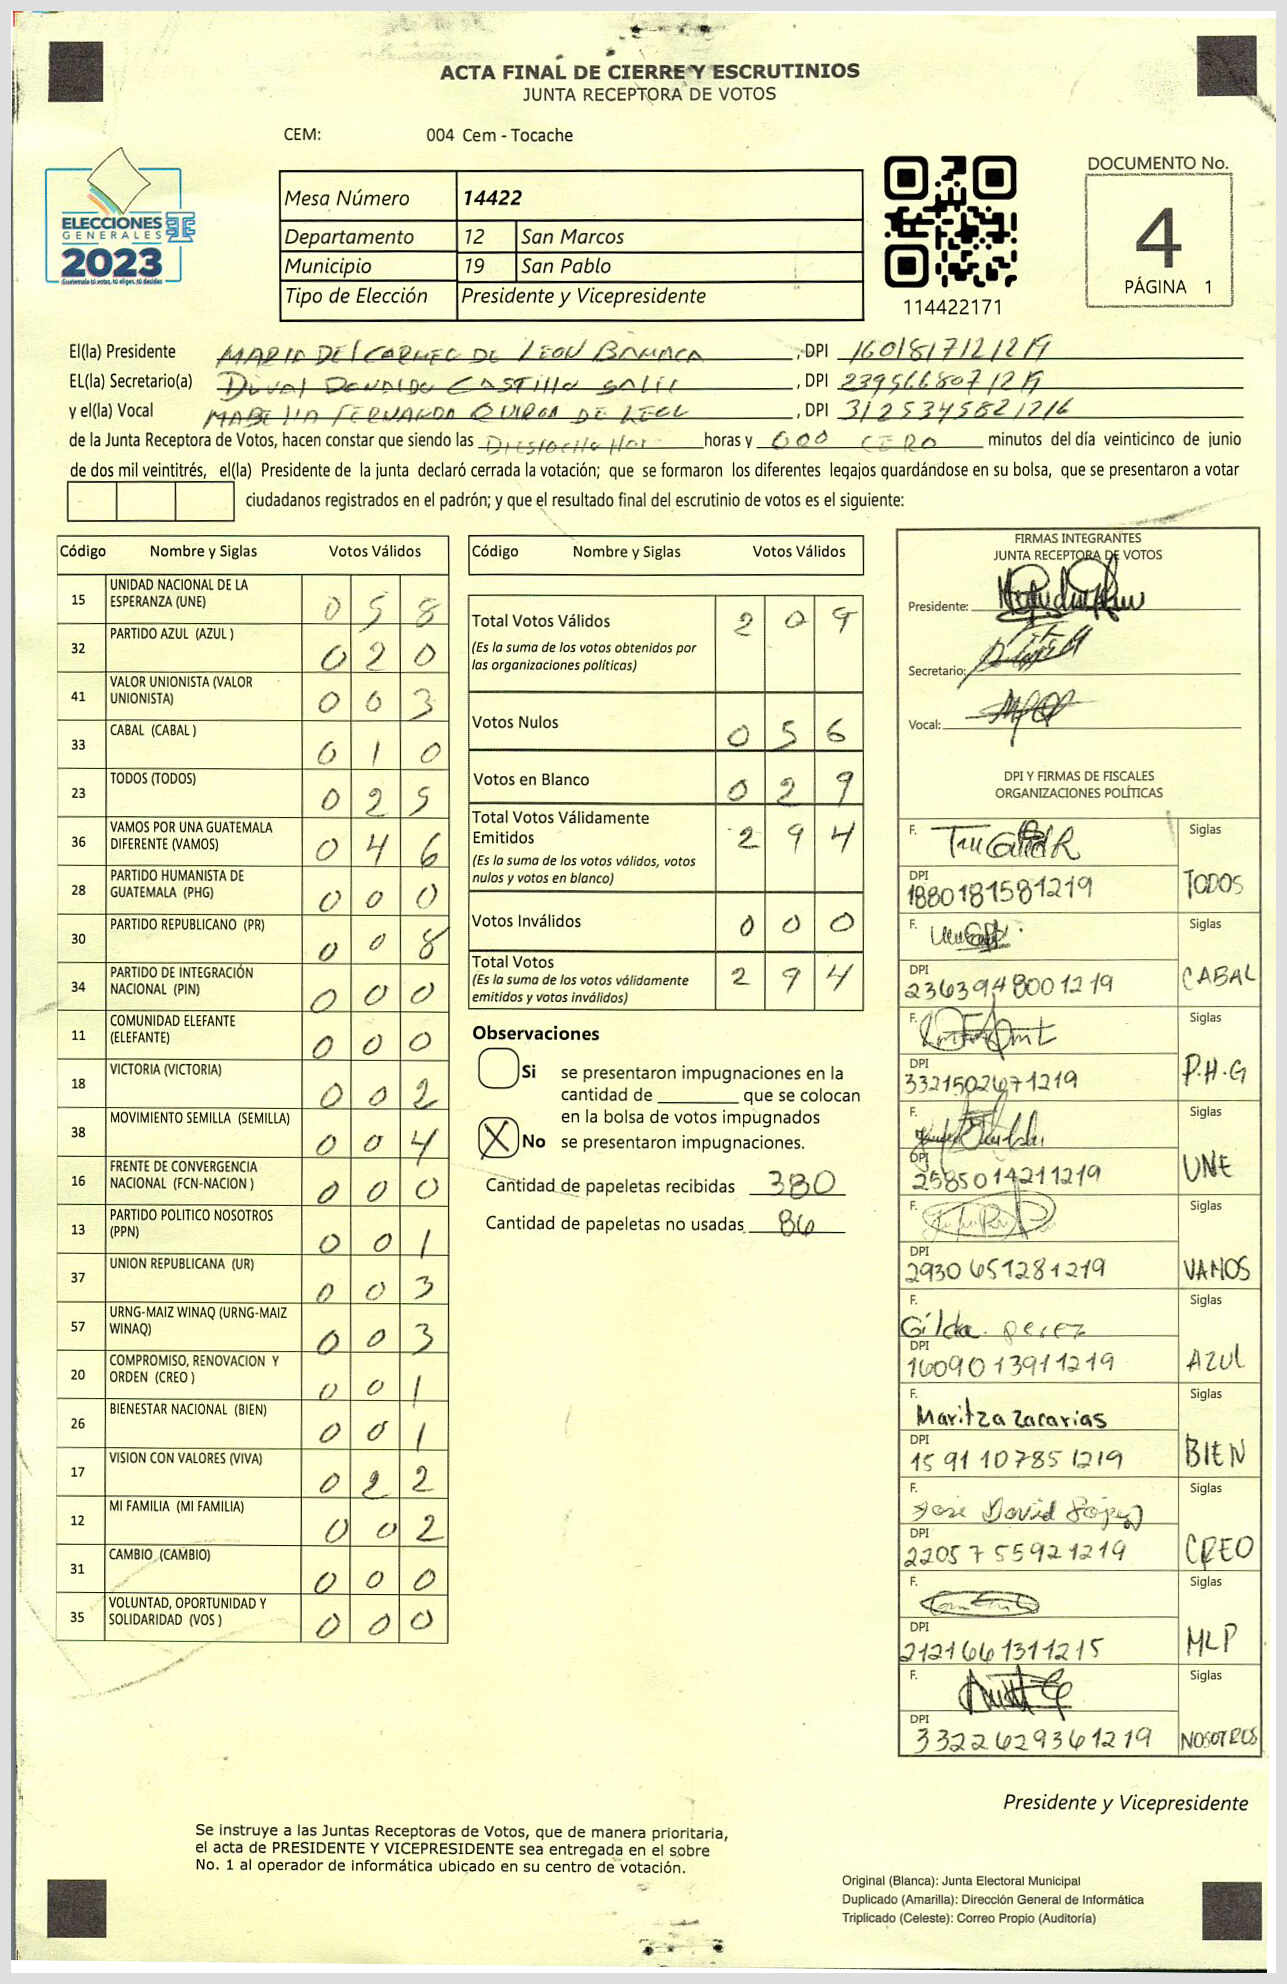 ACTA FINAL DE CIERRE Y ESCRUTINIOS
JUNTA RECEPTORA DE VOTOS
CEM: 004 Cem - Tocache
ELECCIONES
GENERALES
2023
Guatemala tú votas, tú eliges, tú decides
Mesa Número 14422
Departamento 12 San Marcos
Municipio 19 San Pablo
Tipo de Elección Presidente y Vicepresidente
114422171
DOCUMENTO No.
4
PÁGINA 1
El(la) Presidente MARIA DEL CARMEN DE LEON BAMACA , DPI 1601817121219
EL(la) Secretario(a) DUVAL DONALDO CASTILLO , DPI 2395668071219
y el(la) Vocal FERNANDA QUIROA DE LEON , DPI 3125345821216
de la Junta Receptora de Votos, hacen constar que siendo las horas y 000 CERO minutos del día veinticinco de junio
de dos mil veintitrés, el(la) Presidente de la junta declaró cerrada la votación; que se formaron los diferentes legajos quardándose en su bolsa, que se presentaron a votar
ciudadanos registrados en el padrón; y que el resultado final del escrutinio de votos es el siguiente:
Código Nombre y Siglas Votos Válidos
15 UNIDAD NACIONAL DE LA ESPERANZA (UNE) 0 5 8
32 PARTIDO AZUL (AZUL ) 0 2 0
41 VALOR UNIONISTA (VALOR UNIONISTA) 0 0 3
33 CABAL (CABAL ) 0 1 0
23 TODOS (TODOS) 0 2 5
36 VAMOS POR UNA GUATEMALA DIFERENTE (VAMOS) 0 4 6
28 PARTIDO HUMANISTA DE GUATEMALA (PHG) 0 0 0
30 PARTIDO REPUBLICANO (PR) 0 0 8
34 PARTIDO DE INTEGRACIÓN NACIONAL (PIN) 0 0 0
11 COMUNIDAD ELEFANTE (ELEFANTE) 0 0 0
18 VICTORIA (VICTORIA) 0 0 2
38 MOVIMIENTO SEMILLA (SEMILLA) 0 0 4
16 FRENTE DE CONVERGENCIA NACIONAL (FCN-NACION ) 0 0 0
13 PARTIDO POLITICO NOSOTROS (PPN) 0 0 1
37 UNION REPUBLICANA (UR) 0 0 3
57 URNG-MAIZ WINAQ (URNG-MAIZ WINAQ) 0 0 3
20 COMPROMISO, RENOVACION Y ORDEN (CREO ) 0 0 1
26 BIENESTAR NACIONAL (BIEN) 0 0 1
17 VISION CON VALORES (VIVA) 0 2 2
12 MI FAMILIA (MI FAMILIA) 0 0 2
31 CAMBIO (CAMBIO) 0 0 0
35 VOLUNTAD, OPORTUNIDAD Y SOLIDARIDAD (VOS ) 0 0 0
Código Nombre y Siglas Votos Válidos
Total Votos Válidos 2 0 9
(Es la suma de los votos obtenidos por
las organizaciones politicas)
Votos Nulos 0 5 6
Votos en Blanco 0 2 9
Total Votos Válidamente
Emitidos 2 9 4
(Es la suma de los votos válidos, votos
nulos y votos en blanco)
Votos Inválidos 0 0 0
Total Votos 2 9 4
(Es la suma de los votos válidamente
emitidos y votos inválidos)
Observaciones
Si se presentaron impugnaciones en la
cantidad de ________ que se colocan
en la bolsa de votos impugnados
X No se presentaron impugnaciones.
Cantidad de papeletas recibidas 380
Cantidad de papeletas no usadas 86
FIRMAS INTEGRANTES
JUNTA RECEPTORA DE VOTOS
Presidente:
Secretario:
Vocal:
DPI Y FIRMAS DE FISCALES
ORGANIZACIONES POLÍTICAS
F. Siglas
DPI
1880181581219 TODOS
F. Siglas
DPI
2363948001219 CABAL
F. Siglas
DPI
3321502671219 P.H.G
F. Siglas
DPI
2585014211219 UNE
F. Siglas
DPI
2930651281219 VAMOS
F. Siglas
Gilda perez
DPI
1609013911219 AZUL
F. Siglas
Maritza Zacarias
DPI
1591107851219 BIEN
F. Siglas
Jose David López
DPI
2205755921219 CREO
F. Siglas
DPI
2121661311215 MLP
F. Siglas
DPI
3322629361219 NOSOTROS
Presidente y Vicepresidente
Se instruye a las Juntas Receptoras de Votos, que de manera prioritaria,
el acta de PRESIDENTE Y VICEPRESIDENTE sea entregada en el sobre
No. 1 al operador de informática ubicado en su centro de votación.
Original (Blanca): Junta Electoral Municipal
Duplicado (Amarilla): Dirección General de Informática
Triplicado (Celeste): Correo Propio (Auditoría)